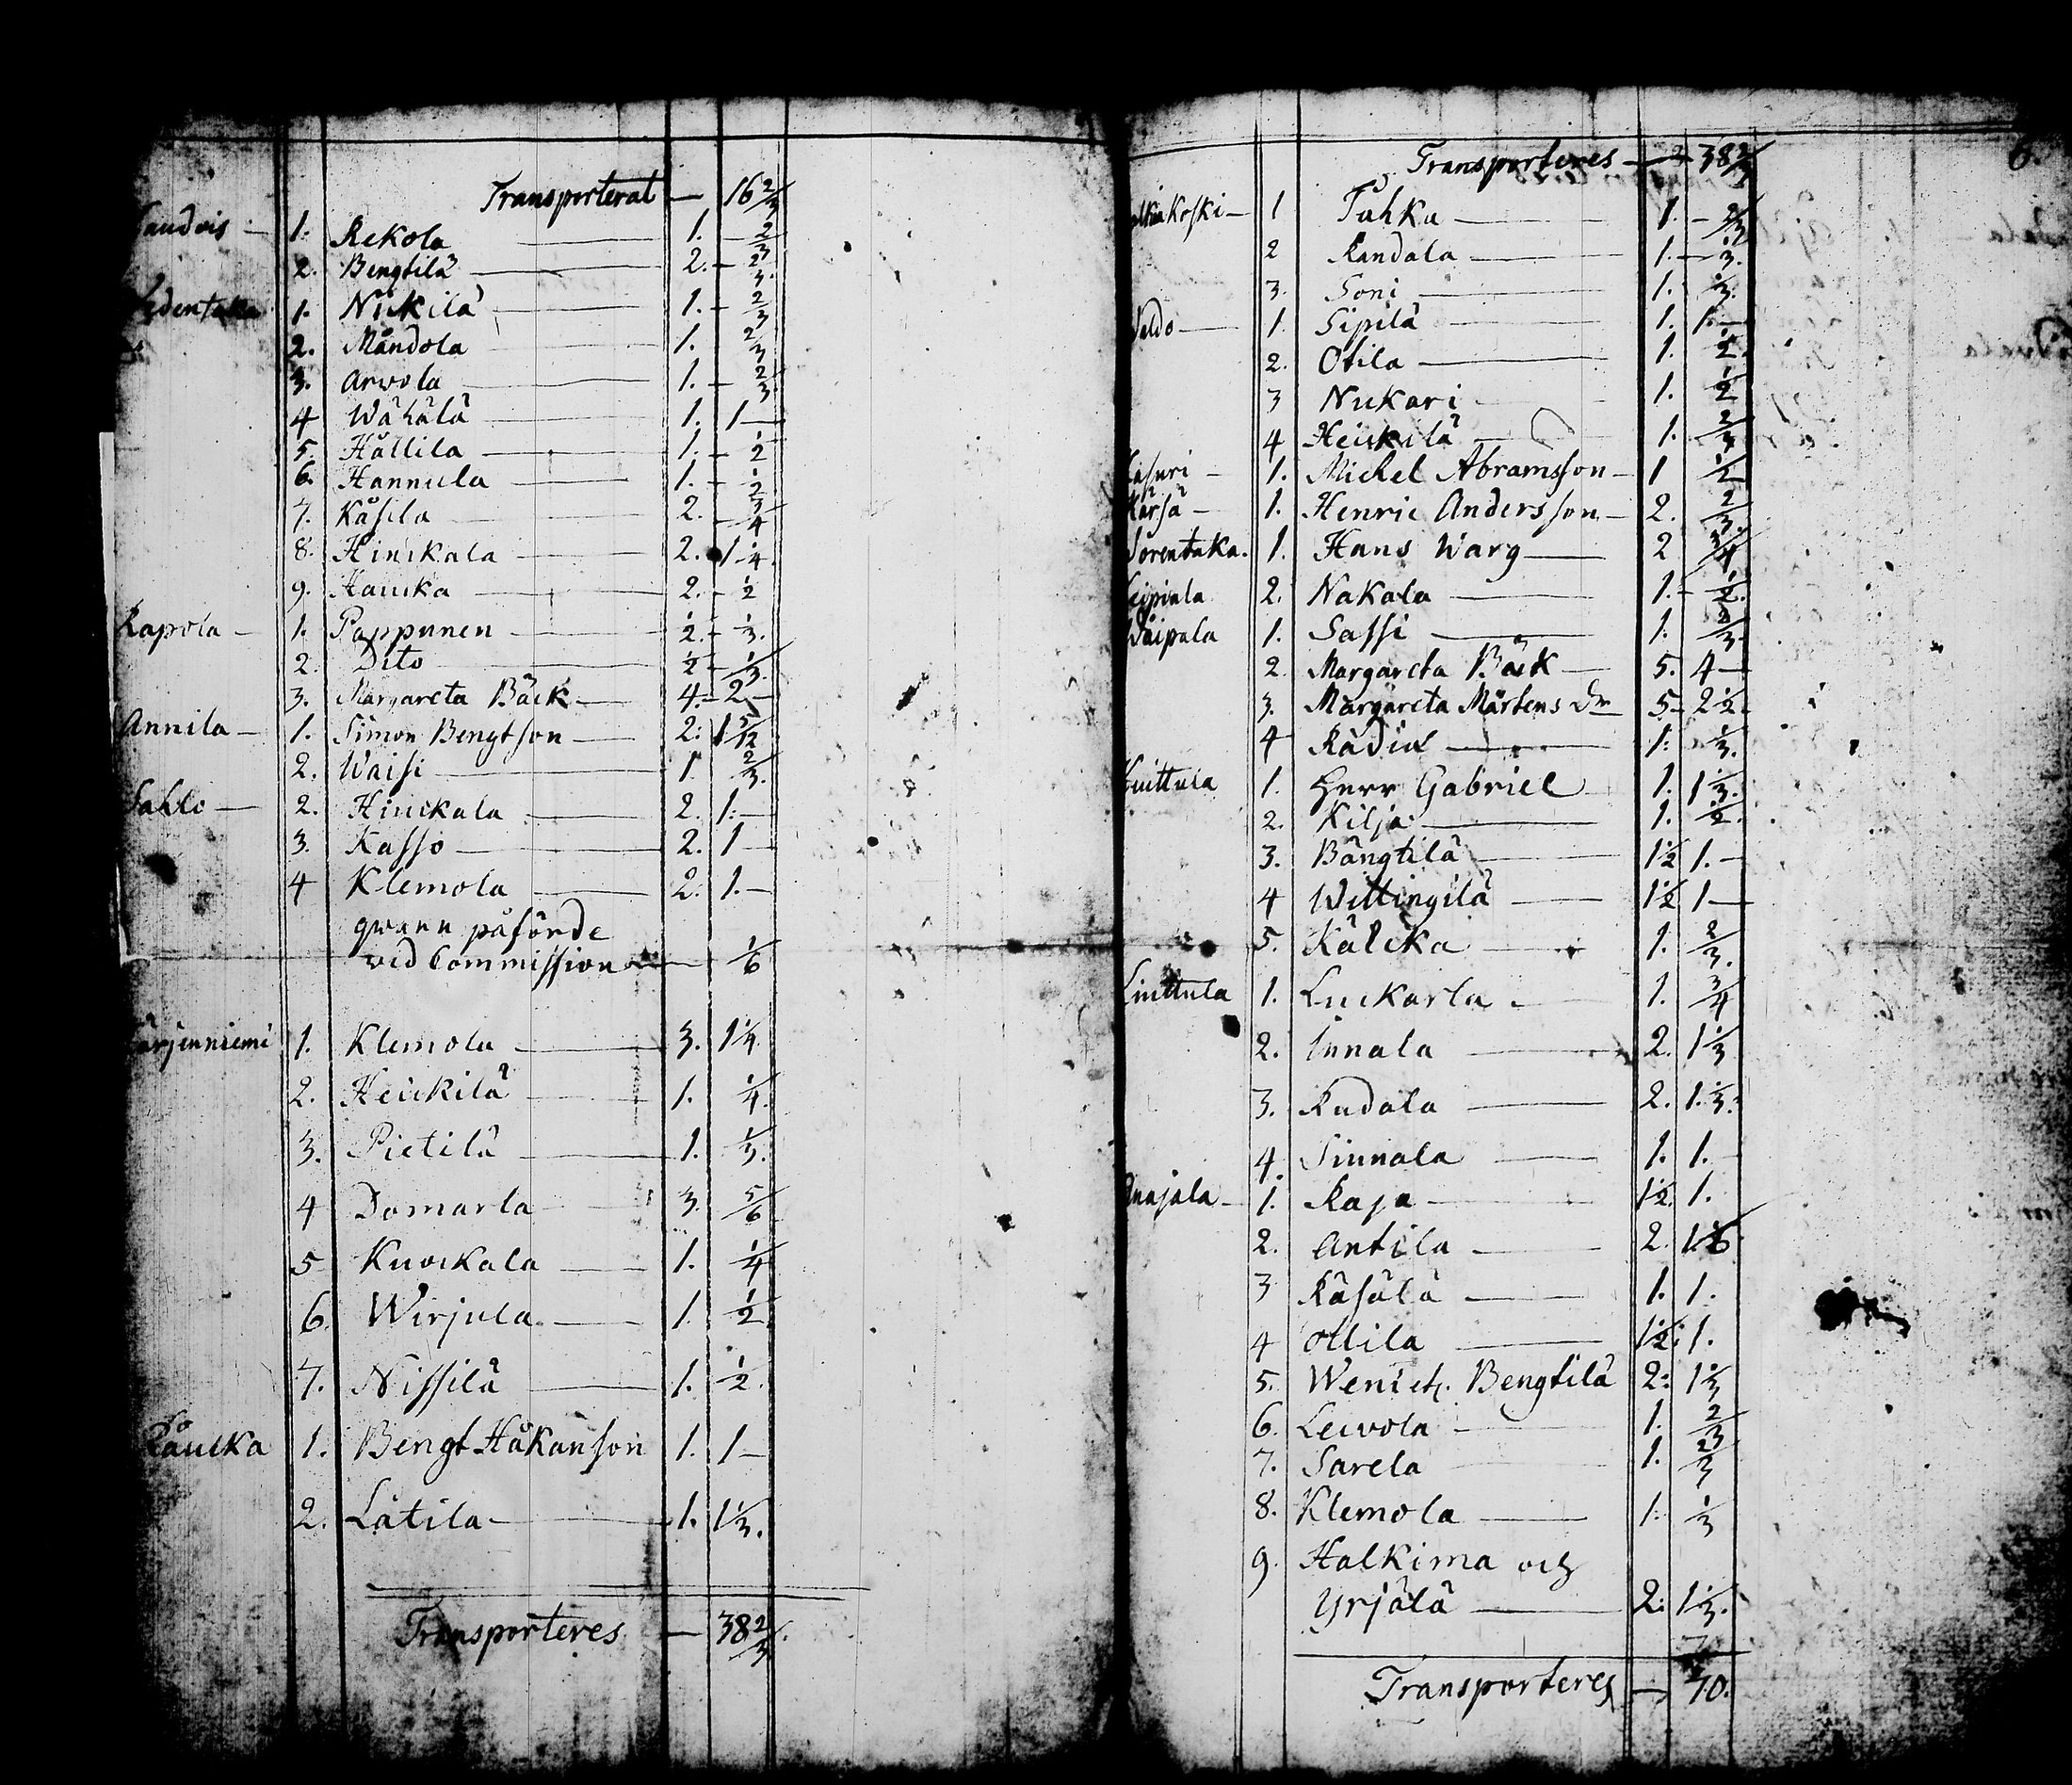 Transporterat — 16 2/3
Saudvis — 1. Rekola — 1. — 2/3
2. Bengtilä — 2. — 2/3.
1. Nickilä — 1. — 2/3
2. Måndola — 1. 2/3
3. Arvola — 1. — 2/3
4 Wähälä — 1. 1 —
5. Hållila — 1. — 1/2
6. Hannula — 1. — 1/2
7. Kåsila — 2. — 3/4
8. Hinckala — 2. 1 1/4.
9. Haucka — 2. — 1/2
Rapola — 1. Pappunen — 1/2. — 1/3.
2. Dito — 1/2 — 1/3.
3. Margareta Bäck — 4. — 2 —
Annila — 1. Simon Bengtson — 2. 1 5/12
2. Waisi — 1. 2/3.
Sahlo — 2. Hinckala — 2. 1. —
3. Kasso — 2. 1 —
4 Klemola — 2. 1. —
qwarn påförde
vid Commission — 1/6
1. Klemola — 3. 1 1/4.
2. Heickilä — 1. 1/4.
3. Pietilä — 1. 1/3.
4 Domarla — 3. 5/6
5 Kuockala — 1. 1/4
6. Wirjula — 1. 1/2
7. Nissilä — 1. 1/2.
1. Bengt Håkanson 1. 1 —
2. Låtila — 1. 1 1/3.
Transporteres — 38 2/3.
6.
Transporteres — 38 2/3
1 Tuhka — 1. — 2/3
2 Randala — 1. — 1/3.
3. Soni — 1. 1/3.
1. Sipilä — 1. 1. —
2. Otila — 1. 1/2.
3 Nukari 1. 1/2
4 Heickilä — 1. 2/3
1. Michel Abramsson — 1 1/2
1. Henric Andersson — 2. 2/3.
1. Hans Warg — 2 3/4
2. Nakala — 1. — 1/2.
1. Sassi — 1. 2/3.
2. Margareta Bäck — 5. 4 —
3. Margareta Mårtens Dr 5 — 2 1/2.
4 — 1. 1/3.
1. Herr Gabriel 1. 1 1/3.
2. Kilja — 1. 1/2.
3. Bångtilä — 1 1/2 1. —
4 Wittingilä — 1 1/2 1 —
5. Kålcka — 1. 2/3.
1. Luckarla — 1. 3/4
2. Innala — 2. 1 1/3
3. Rudala — 2. 1. 1/3.
4. Sinnala — 1. 1. —
1. Raja — 1 1/2. 1.
2. Antila — 2. 1 1/6
3 Räsälä — 1. 1.
4 Ollila — 1 1/2. 1.
5. Bengtilä 2. 1 1/3
6. Leivola — 1. 2/3
7. Sarela — 1. 2/3
8. Klemola — 1. 1/3
9. Halkima och
Yrjälä — 2. 1 1/3.
Transporteres — 70.